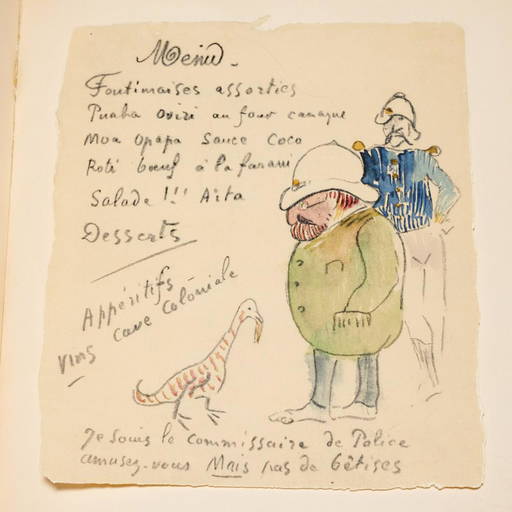 Menu
Foutimaises assorties
Puaka oviri au four canaque
Moa opapa Sauce Coco
Roti bœuf à la farani
Salade !!! Aita
Desserts
Appéritifs
Vins cave Coloniale
Je souis le Commissaire de Police
amusez-vous Mais pas de bêtises